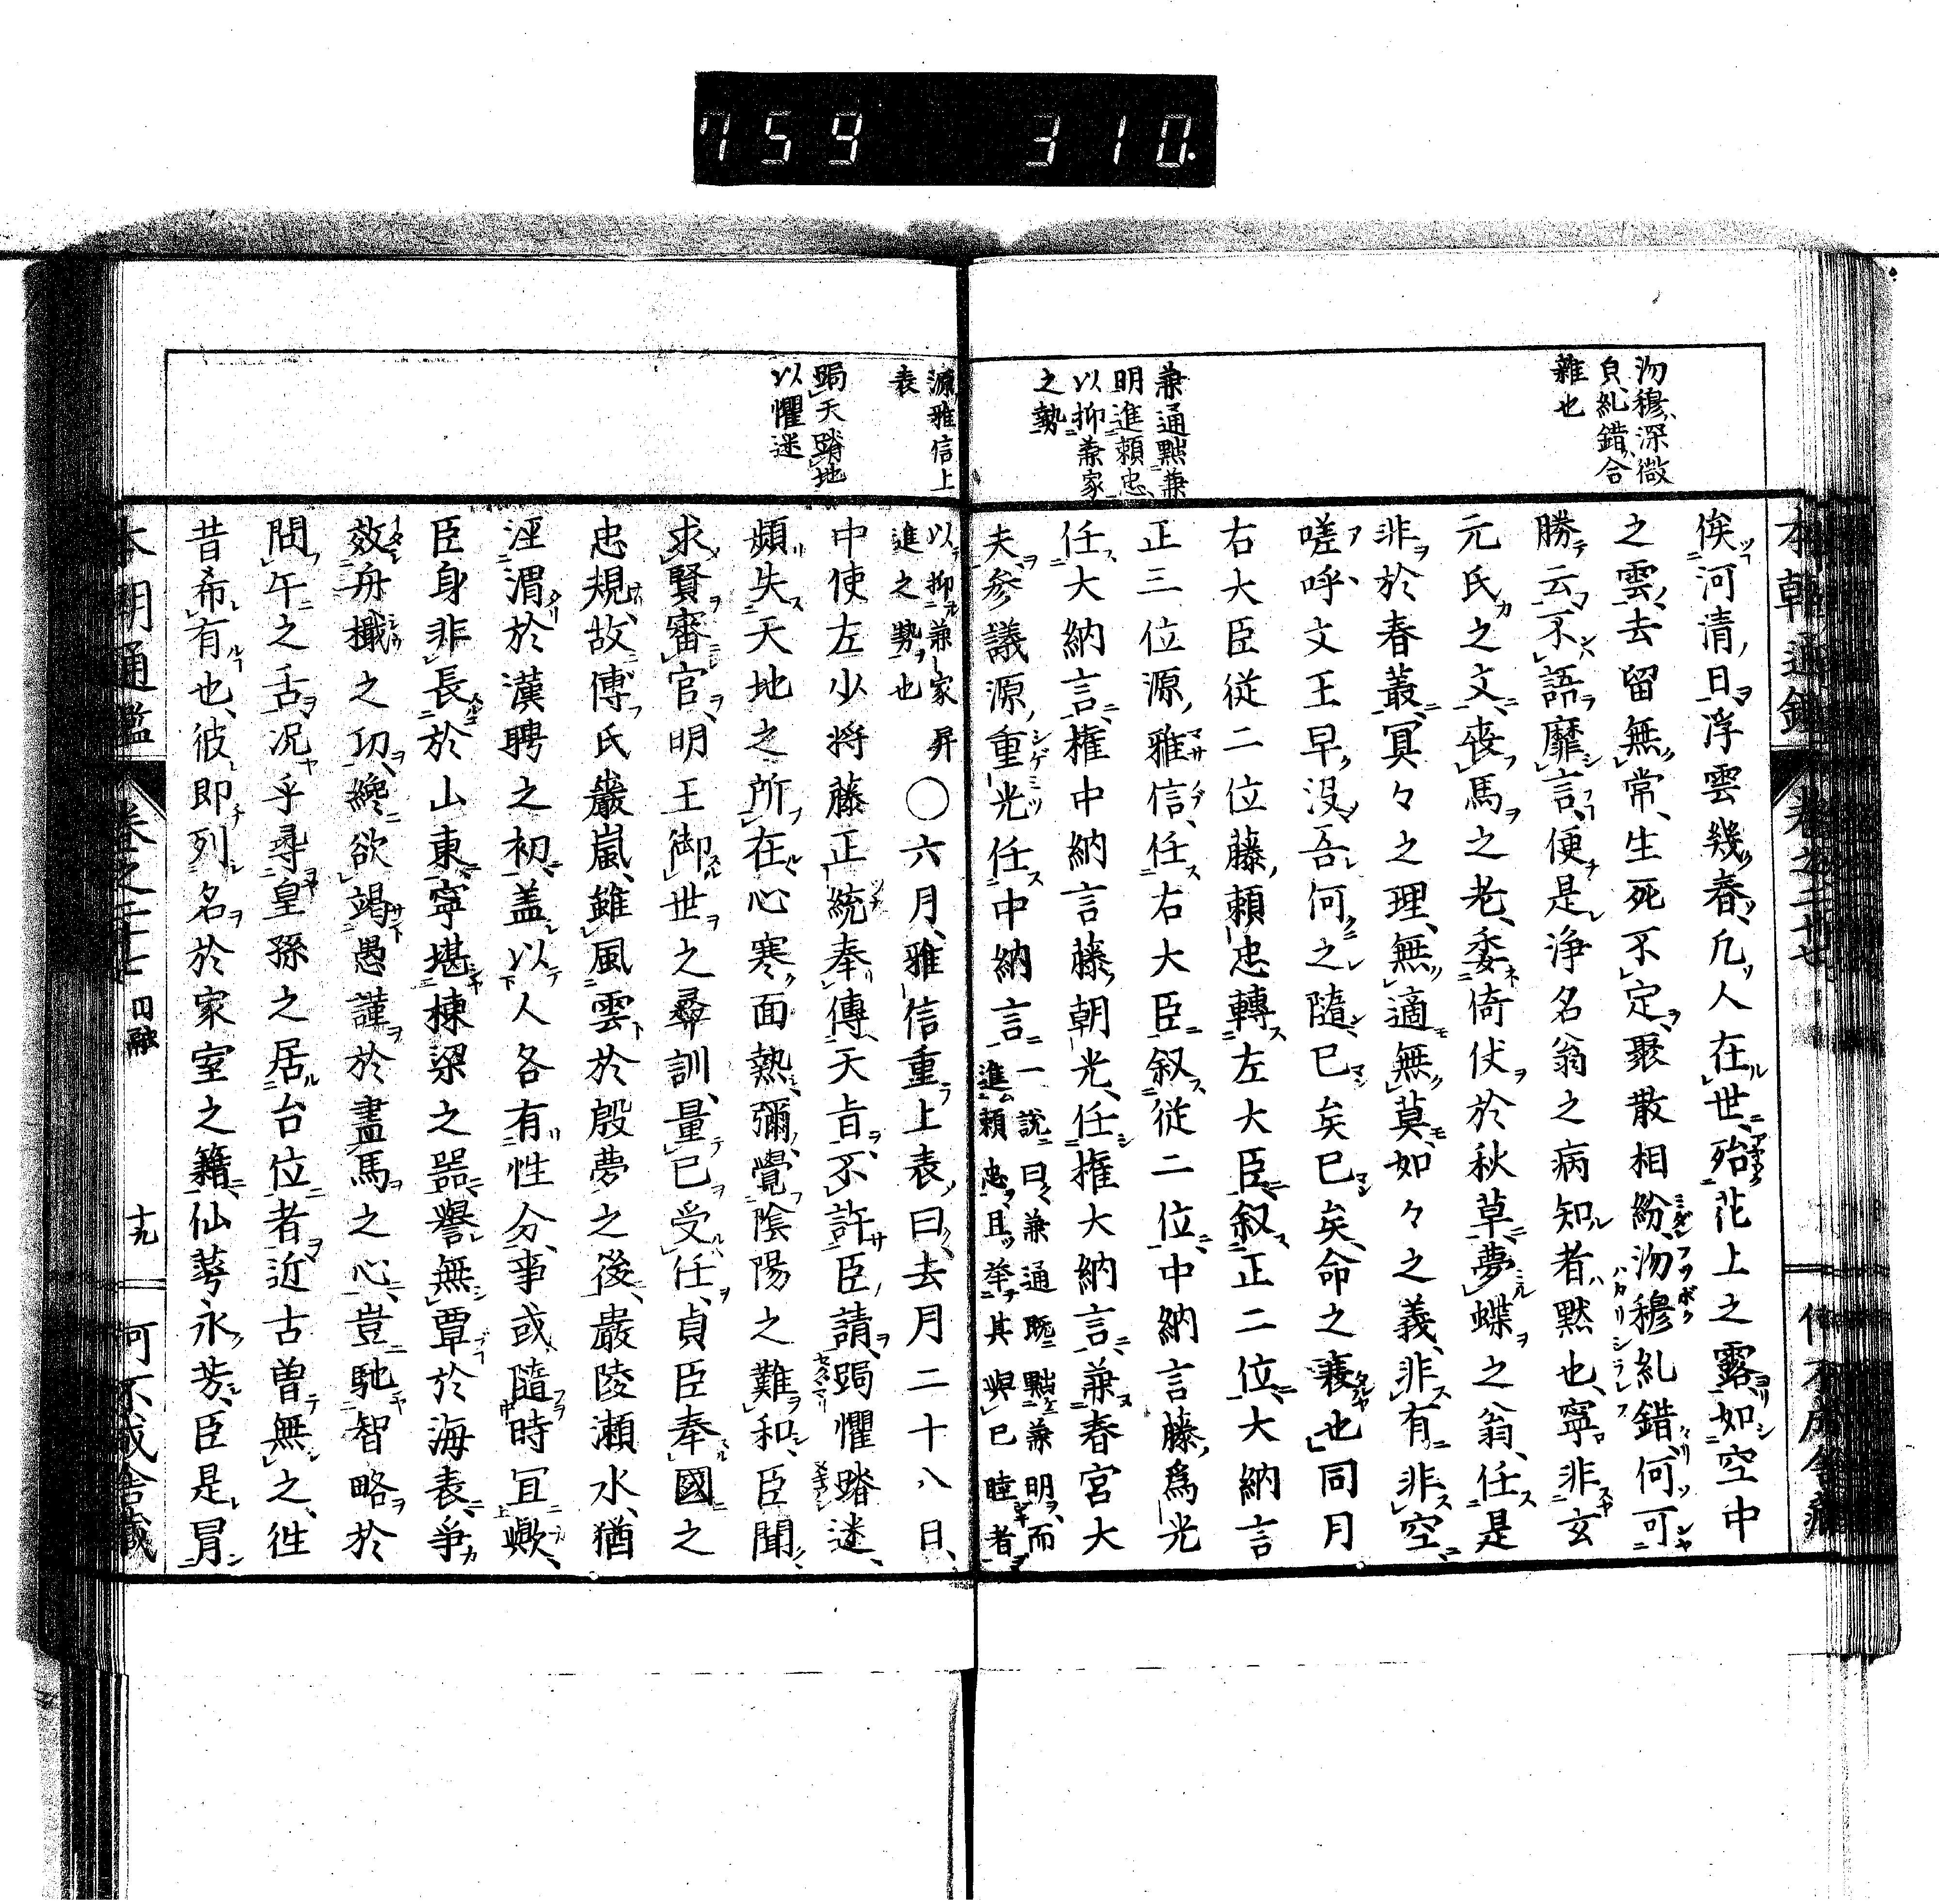 759 310.
沕穆、深微
貟、糺錯、合
雜也
兼通黙兼
明進頼忠、
以抑兼家
之勢
俟河清、日浮雲幾春、凡人在世、殆花上之露、如空中
之雲、去留無常、生死不定、聚散相紛、沕穆糺錯、何可
勝云、不語靡言、便是浄名翁之病、知者黙也、寧非玄
元氏之文、喪馬之老、委倚伏於秋草、夢蝶之翁、任是
非於春叢、冥々之理、無適無莫、如々之義、非有非空、
嗟呼、文王早没、吾何之隨、已矣已矣、命之衰也、同月
右大臣従二位藤頼忠轉左大臣、叙正二位、大納言
正三位源雅信、任右大臣、叙従二位、中納言藤爲光
任大納言、権中納言藤朝光、任権大納言、兼春宮大
夫、参議源重光任中納言、一説曰、兼通既黜兼明、而
進頼忠、且挙其與已睦者
源雅信上
表
跼天蹐地
以懼迷
以抑兼家昇
進之勢也
〇六月、雅信重上表曰、去月二十八日、
中使左少将藤正統奉傳天㫖、不許臣請、跼懼蹐迷、
頻失天地之所在、心寒面熱、彌覺陰陽之難和、臣聞
求賢審官、明王御世之彝訓、量已受任、貞臣奉國之
忠規、故傅氏巖嵐、雖風雲於殷夢之後、嚴陵瀬水、猶
涇渭於漢聘之初、盖以人各有性分、事或隨時冝歟、
臣身非長於山東、寧堪棟梁之器、譽無覃於海表、爭
效舟檝之功、纔欲竭愚謹於盡馬之心、豈馳智略於
問午之舌、况乎尋皇孫之居台位者、近古曽無之、徃
昔希有也、彼即列名於家室之籍、仙萼永芳、臣是冐
本朝通鑑 巻之二十七 円融 十九